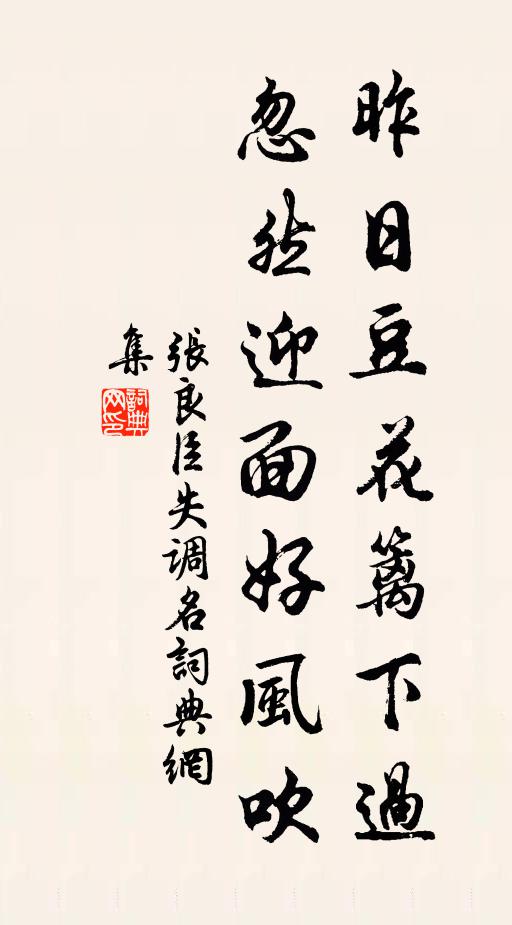 昨日豆花篱下過
忽然迎面好風吹
張良臣失调名詞典網
集
詞典
网印